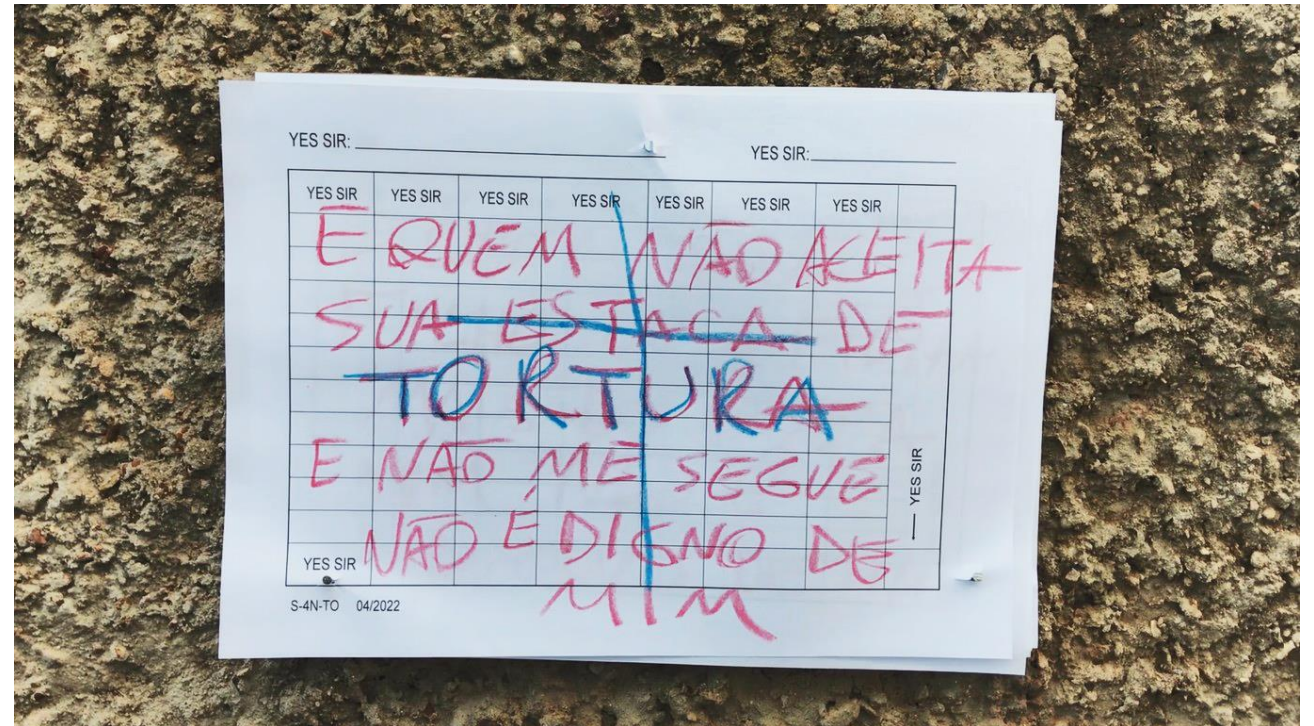 YES SIR: YES SIR:
YES SIR YES SIR YES SIR YES SIR YES SIR YES SIR YES SIR
E QUEM NÃO ACEITA
SUA ESTACA DE
TORTURA
E NÃO ME SEGUE
NÃO É DIGNO DE
MIM
YES SIR
YES SIR
S-4N-TO 04/2022